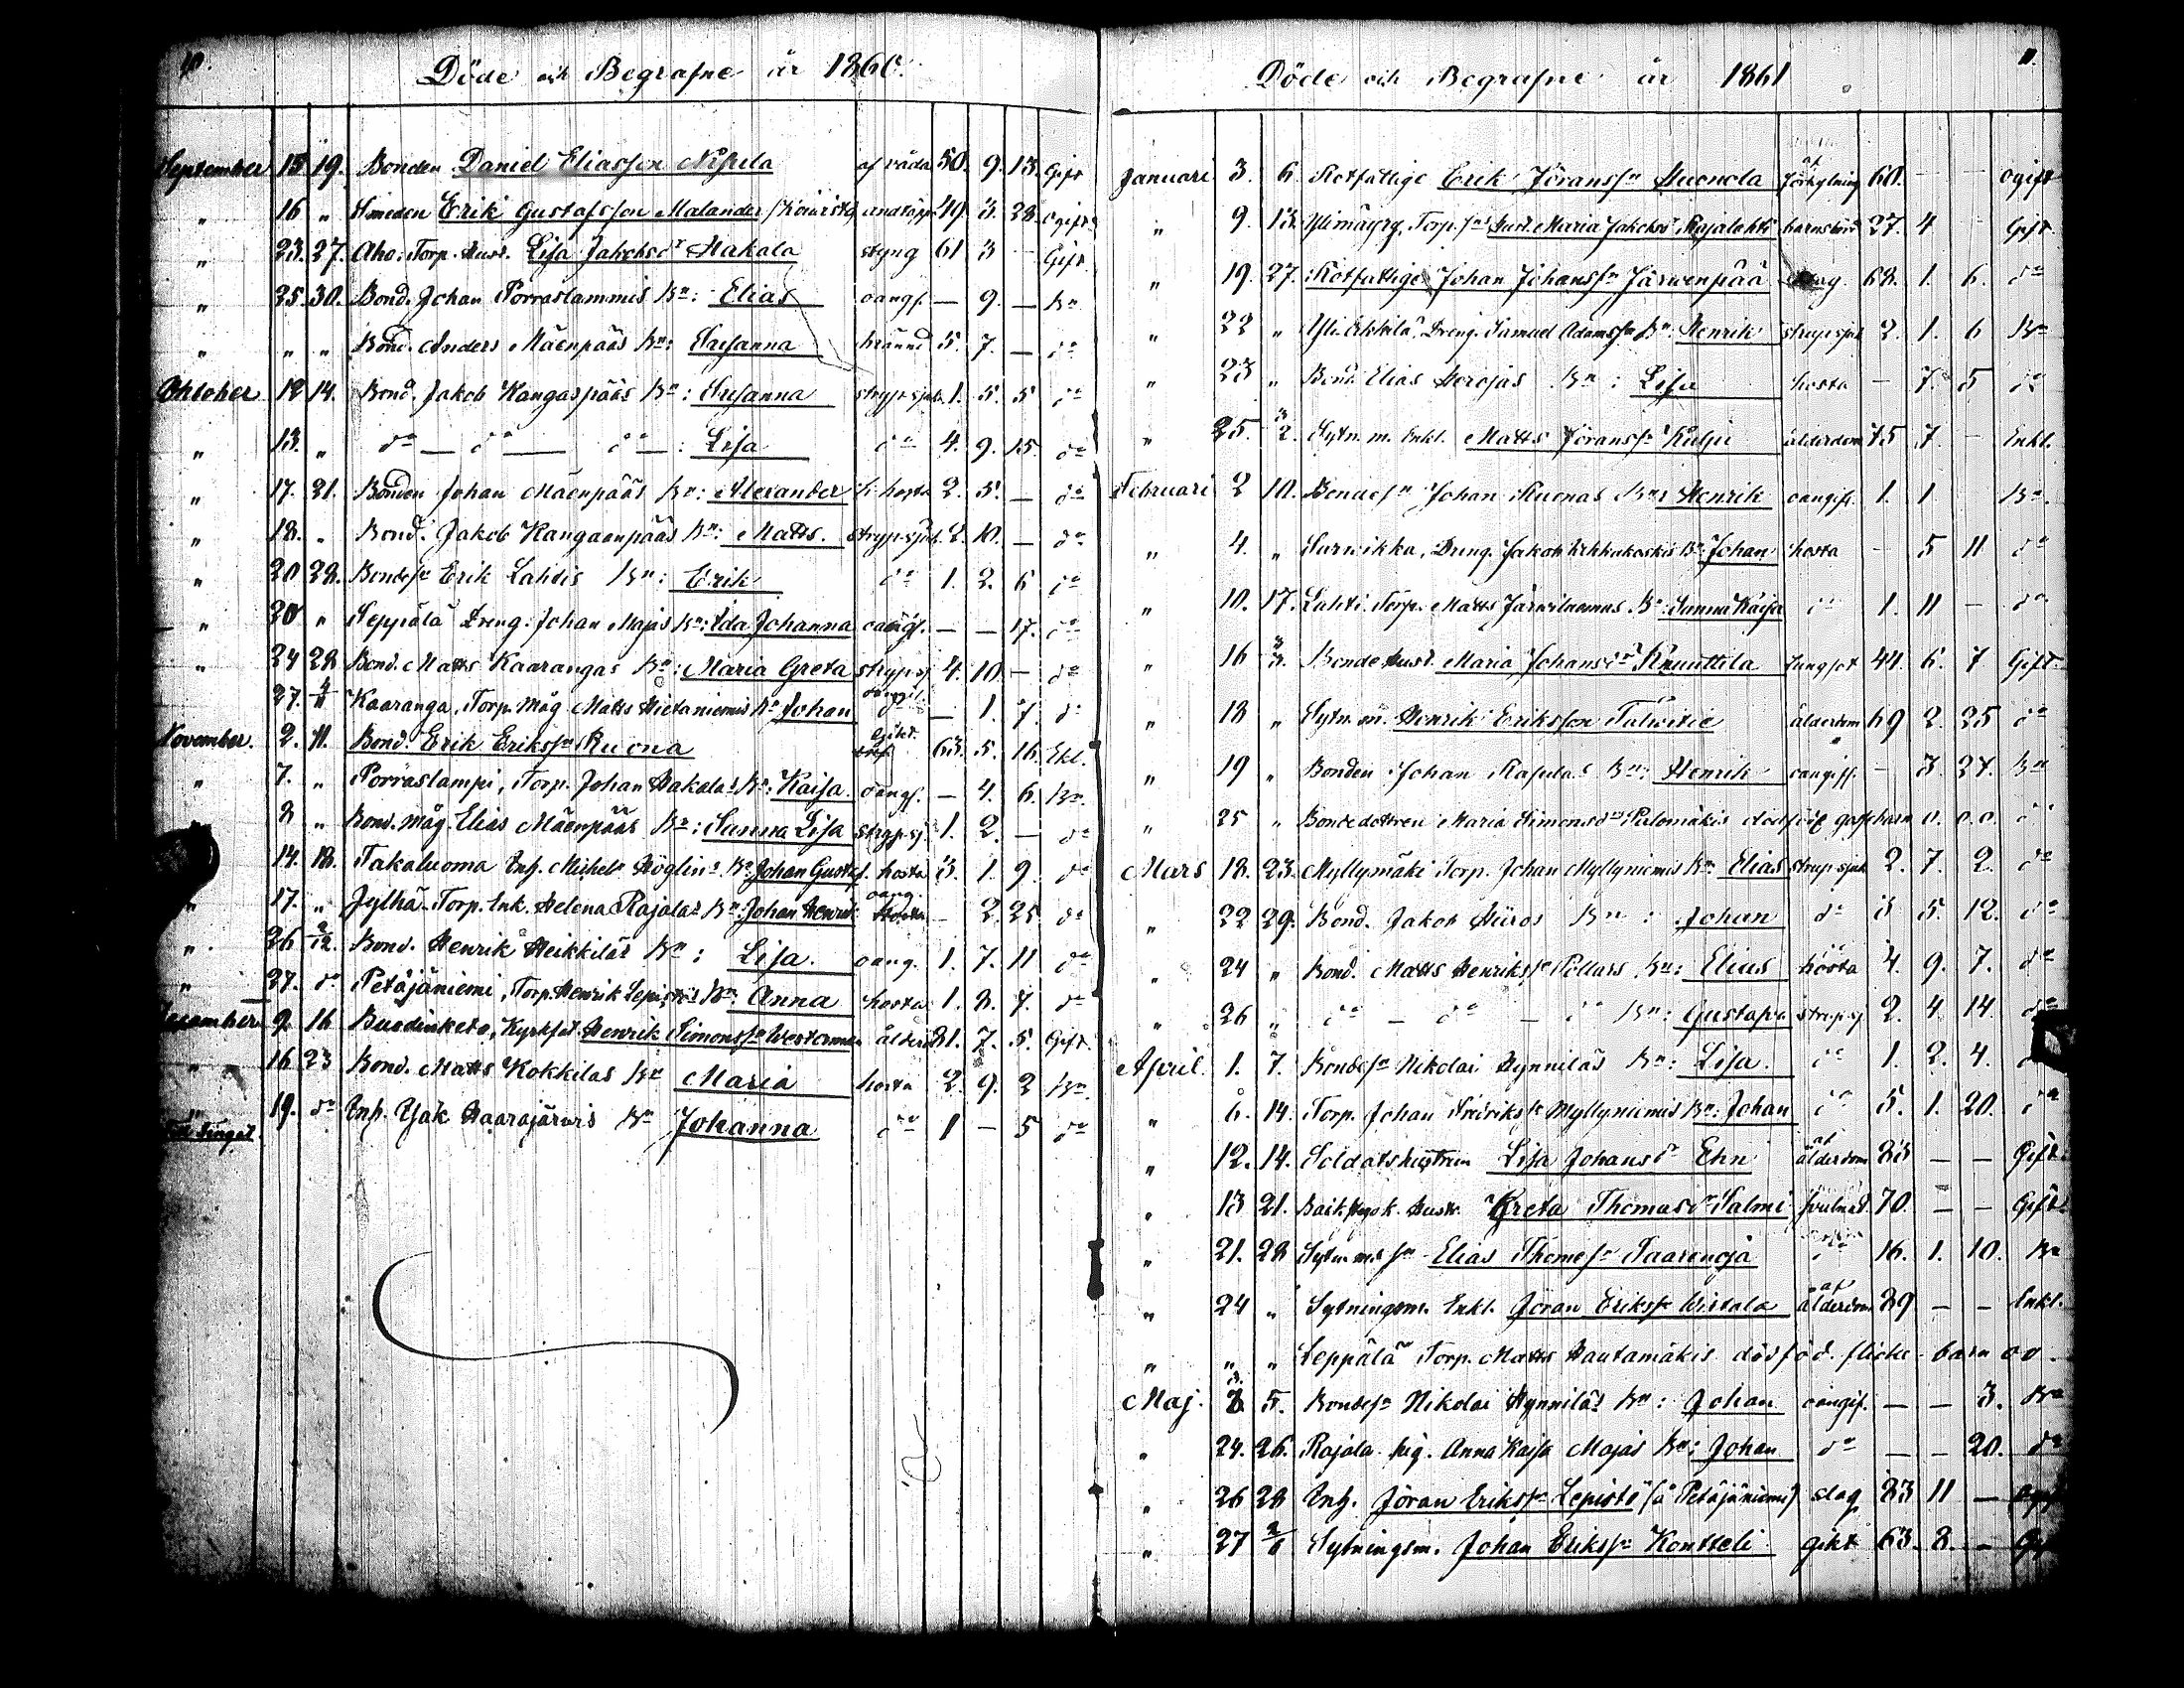 10.
Döde och Begrafne år 1860.
September 15 19. Bonden Daniel Eliasson Nisula af våda 50. 9. 13. Gift
" 16 " Smeden Erik Gustafsson Malander 49. 3. 28 ogift
" 23. 27. Aho: Torp. Hust. Lisa Jakobsdr Hakala styng 61 3 – Gift
" 25. 30. Bond. Johan Porraslammis Bn: Elias oangf. — 9. — Bn
" " " Bond. Anders Mäenpääs Bn: Susanna bränd 5. 7. — do
Oktober 12 14. Bond. Jakob Kangaspääs Bn: Susanna stryp-sjuk. 1. 5. 5 do
" 13. " do — do — do —: Lisa do 4. 9. 15. do
" 17. 21. Bonden Johan Mäenpääs Bn: Alexander hosta 2. 5. — do
" 18. " Bond. Jakob Kangaenpääs Bn: Matts. stryp-sjuk. 2. 10. — do
" 20 28. Bondesn Erik Lahdis Bn: Erik do 1. 2. 6 do
" 20 " Seppälä Dreng. Johan Majas Bn: Ida Johanna oangf. — — 17. do
" 24 28 Bond. Matts Kaarangas Bn: Maria Greta stryp-sj 4. 10. — do
27. 4/11 Kaaranga, Torp. Måg Matts Hietaniemis Bn Johan oangif. — 1. 7. do
November. 2. 11. Bond. Erik Erikssn Ruona 63. 5. 16. Ekl.
" 7. " Porraslampi, Torp. Johan Hakalas Bn: Kaisa oangf. — 4. 6. Bn.
8 " Bond. måg Elias Mäenpääs Bn: Sanna Lisa stryp-sj 1. 2. — do
14. 18. Takaluoma Inh. Michel Höglins Bn Johan Gustaf. hosta 3. 1. 9. do
" 17. " Jylhä. Torp. Enk. Helena Rajalas Bn: Johan Henrik oang. – 2. 25 do
" 26 2/12. Bond. Henrik Heikkiläs Bn: Lisa. oang. 1. 7. 11 do
" 27. do Petäjäniemi, Torp. Henrik Lepistös Bn: Anna hosta 1. 8. 7. do
December 9. 16 Kyrkfat. Henrik Simonssn Westerman ålderd 81. 7. 5. Gift.
" 16 23 Bond. Matts Kokkilas Bn Maria hosta 2. 9. 2 Bn.
" 19. do Inh. Isak Haarajärwis Bn Johanna do 1 – 5 do
11.
Döde och Begrafne år 1861
Januari 3. 6. Rotfattige Erik Jöranssn Huonola af förkylning 60. — — ogift
" 9. 13. Torp. sns Hust. Maria Jakobsdr Rajalahti barnsbörd 27. 4 Gift.
" 19. 27. Rotfattige Johan Johanssn Järwenpää 68. 1. 6. do
" 22 " Yli-Ekkilä, Dreng. Samuel Adamssn Bn: Henrik stryp-sjuk 2. 1. 6 Bn
" 23 " Bond. Elias Herojas Bn: Lisa hosta – 7. 5. do
" 25. 3/2. Sytn. m. Enkl. Matts Jöranssn Kulju ålderdom 75 7. – Enkl.
Februari 2 10. Bondesn Johan Ruonas Bn: Henrik oangif. 1. 1 Bn.
" 4. " Surwikka, Dreng. Jakob Bn: Johan hosta – 5 11 do
" 10. 17. Lahti. Torp. Matts Järwiluomas Bn: Sanna Kaisa do 1. 11 – do
" 16 3/3. Bonde Hust. Maria Johansdr Knuuttila lungsot 44. 6. 7 Gift.
" 18 " Sytn. m. Henrik Eriksson Talwitie ålderdom 69 2. 25 do
" 19 " Bonden Johan Rasulas Bn: Henrik oangiff. – 3. 27. Bn
" 25 " Bondedottren Maria Simonsdr Palomäkis dödföd gossbarn 0. 0. 0. do
Mars 18. 23. Myllymäki Torp. Johan Myllyniemis Bn: Elias stryp-sjuk 2. 7. 2. do
" 22 29. Bond. Jakob Hiiros Bn: Johan do 3 5. 12. do
" 24 " Bond. Matts Henrikssn Pollars Bn: Elias hosta 4. 9. 7. do
" 26 " do – do – do Bn: Gustafva stryp-sj 2. 4. 14. do
April. 1. 7. Bondesn Nikolai Hynniläs Bn: Lisa. do 1. 2. 4. do
" 6. 14. Torp. Johan Fredrikssn Myllyniemis Bn: Johan do 5. 1. 20. do
" 12. 14. Soldatshustrun Lisa Johansdr Ehn af ålderdom 83 — — Gift.
" 13 21. Hustr. Greta Thomasdr Salmi 70. — — Gift.
" 21. 28 Sytn. ms sn Elias Thomassn Saarenoja 16. 1. 10. Bn
" 24 " Sytningsm. Enkl. Jöran Erikssn Wistala af ålderdom 89 — – Enkl.
" " " Seppälä Torp. Matts Hautamäkis dödföd. flicke-barn 00.
Maj. 3. 5. Bondesn Nikolai Hynniläs Bn: Johan oangif. — — 3. Bn
" 24. 26. Rajala pig. Anna Kajsa Majas Bn: Johan do — — 20. do
" 26 28 Inh. Jöran Erikssn Lepistö (å Petäjäniemi) slag 83 11 —
" 27 2/6 Sytningsm. Johan Erikssn Kontteli gikt 63. 8. –